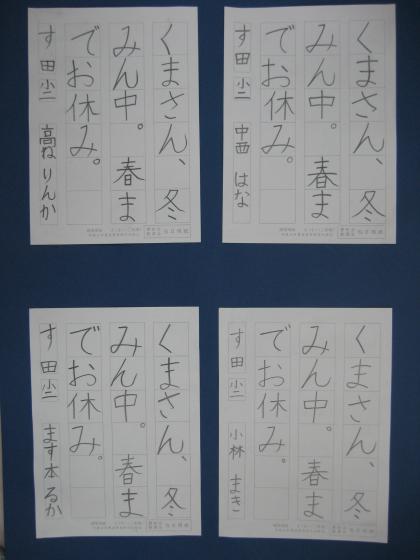 くまさん、冬
みん中。春ま
でお休み。
す田小二 高ね りんか
くまさん、冬
みん中。春ま
でお休み。
す田小二 中西 はな
くまさん、冬
みん中。春ま
でお休み。
す田小二 ます本 るか
くまさん、冬
みん中。春ま
でお休み。
す田小二 小林 まき